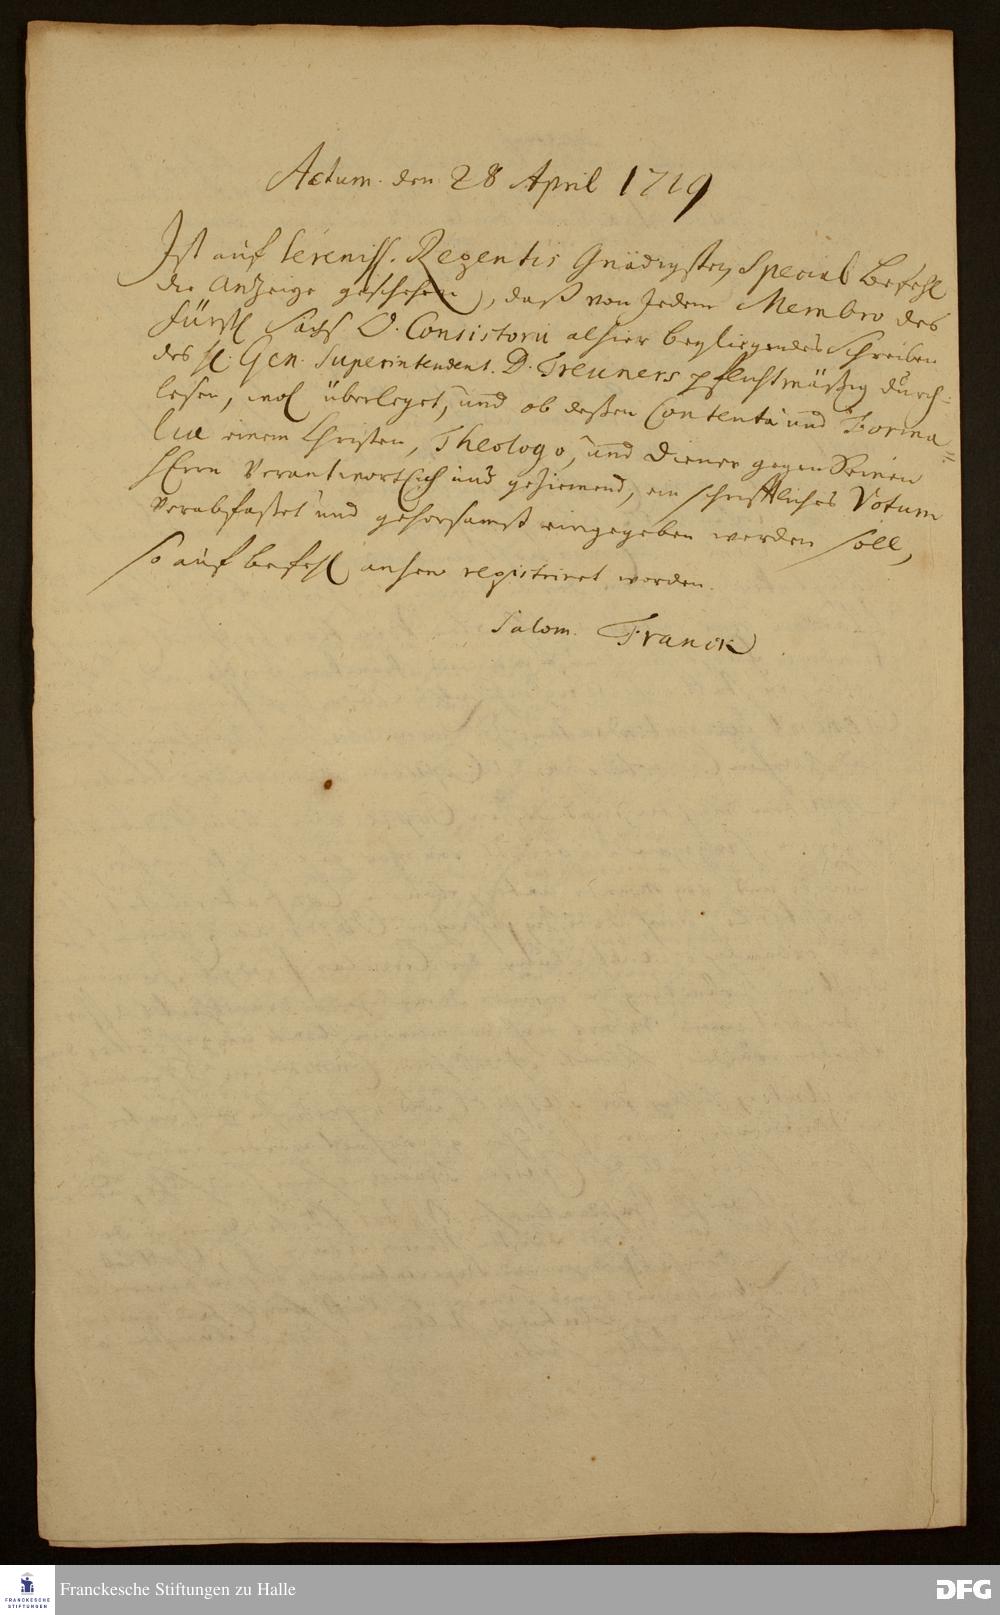 Actum. den 28 April 1719
Ist auf Sereniss. Regentis Gnädigsten Special Befehl
die Anzeige geschehen, daß von Jedem Membro des
Fürstl Sächs O. Consistorii alhier beyliegendes Schreiben
des H. Gen. Superintendent. D. Treuners pflichtmäßig durch=
lesen, wol überleget, und ob deßen Contenta und Forma=
lia einem Christen, Theologo, und Diener gegen Seinen
HErrn Verantwortlich und geziemend, ein schrifftliches Votum
Verabfaßet und gehorsamst eingegeben werden soll,
so auf befehl anhero registriret worden.
Salom. Franck
Franckesche Stiftungen zu Halle
FRANCKESCHE
STIFTUNGEN
DFG